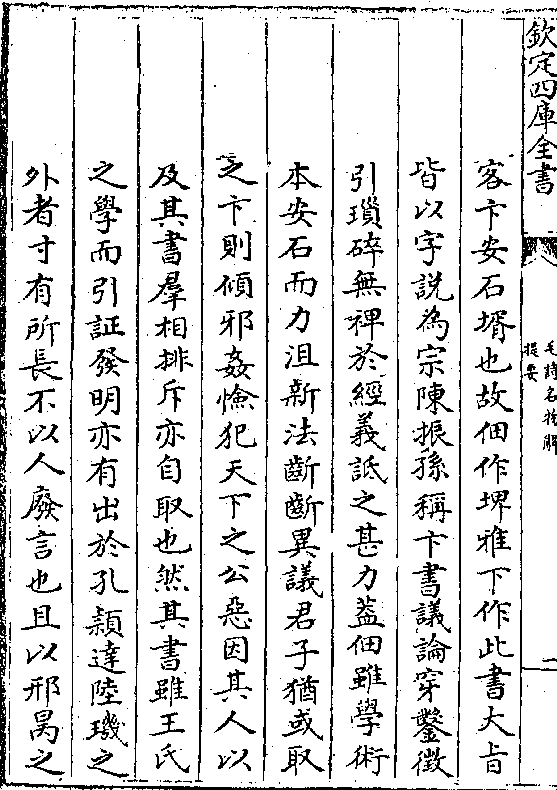 欽定四庫全書
毛詩名物解
提要
二
客卞安石壻也故佃作埤雅下作此書大旨
皆以字說為宗陳振孫稱卞書議論穿鑿徴
引瑣碎無裨於經義詆之甚力葢佃雖學術
本安石而力沮新法斷斷異議君子猶或取
之卞則傾邪姦憸犯天下之公惡因其人以
及其書羣相排斥亦自取也然其書雖王氏
之學而引証發明亦有出於孔穎達陸璣之
外者寸有所長不以人廢言也且以邢昺之